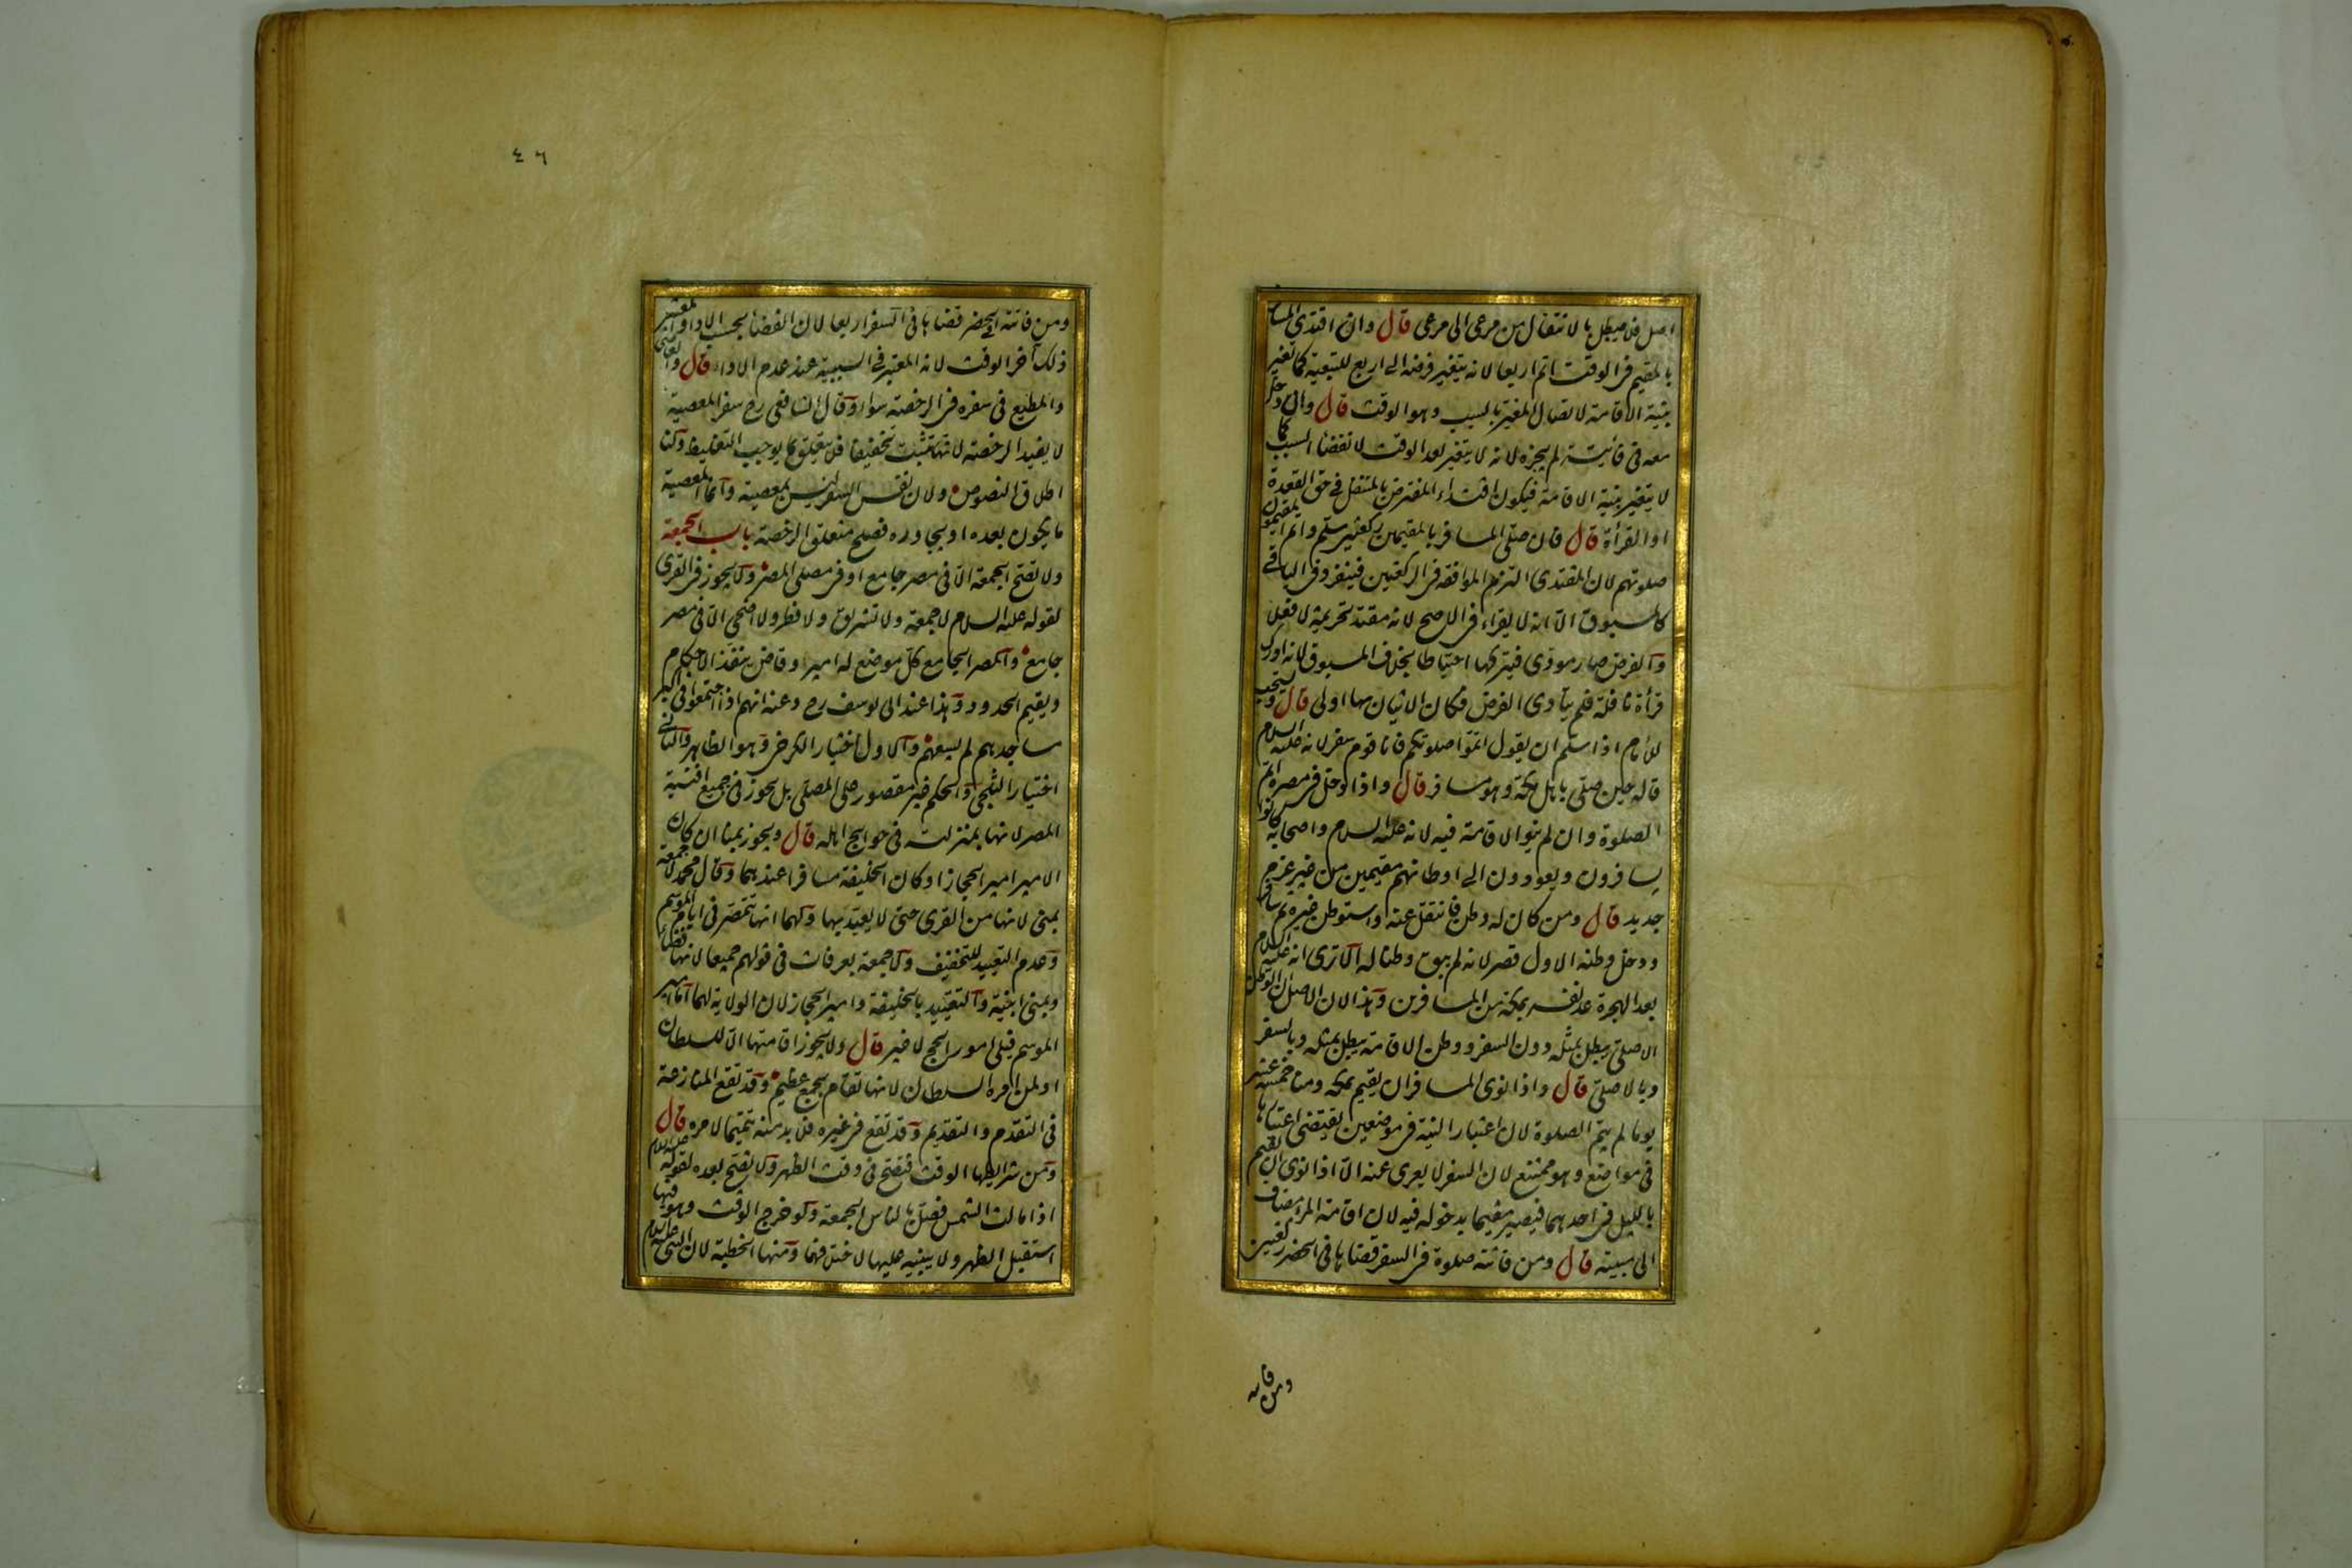 اصل فلا يبطل بالانتقال من مرعى الى مرعى قال وان اقتدى المسافر
بالمقيم فى الوقت اتم اربعا لانه يتغير فرضه الى اربع للتبعية كما تغير
بنية الاقامة لاتصال المغير بالسبب وهو الوقت قال وان دخل
معه فى فائتة لم يجزه لانه لا يتغير بعد الوقت لانقضاء السبب كما
لا يتغير بنية الاقامة فيكون اقتداء المفترض بالمتنفل فى حق القعدة
او القرأة قال فان صلى المسافر بالمقيمين ركعتين سلم واتم المقيمون
صلوتهم لان المقتدى التزم الموافقة فى الركعتين فينفرد فى الباقى
كالمسبوق الا انه لا يقراء فى الاصح لانه مقتد تحريمة لا فعلا
والفرض صار مؤدى فيتركها احتياطا بخلاف المسبوق لانه ادرك
قرأة نافلة فلم يتأدى الفرض فكان الاتيان بها اولى قال ويستحب
للامام اذا سلم ان يقول اتموا صلوتكم فانا قوم سفر لانه عليه السلام
قاله حين صلى باهل مكة وهو مسافر قال واذا دخل فى مصره اتم
الصلوة وان لم ينو الاقامة فيه لانه عليه السلام واصحابه كانوا
يسافرون ويعودون الى اوطانهم مقيمين من غير عزم
جديد قال ومن كان له وطن فانتقل عنه واستوطن غيره ثم سافر
ودخل وطنه الاول قصر لانه لم يبق وطنا له الا ترى انه عليه السلام
بعد الهجرة عد نفسه بمكة من المسافرين وهذا لان الاصل ان الوطن
الاصلى يبطل بمثله دون السفر ووطن الاقامة يبطل بمثله وبالسفر
وبالاصلى قال واذا نوى المسافر ان يقيم بمكة ومنا خمسة عشر
يوما لم يتم الصلوة لان اعتبار النية فى موضعين يقتضى اعتبارها
فى مواضع وهو ممتنع لان السفر لا يعرى عنه الا اذا نوى ان يقيم
بالليل فى احدهما فيصير مقيما بدخوله فيه لان اقامة المرء مضاف
الى مبيته قال ومن فاتته صلوة فى السفر قضاها فى الحضر ركعتين
ومن فاتته
٤٦
ومن فاتته فى الحضر قضاها فى السفر اربعا لان القضا بحسب الاداء والمعتبر فى
ذلك آخر الوقت لانه المعتبر فى السببية عند عدم الاداء قال والعاصى
والمطيع فى سفره فى الرخصة سواء وقال الشافعى رح سفر المعصية
لا يفيد الرخصة لانها تثبت تخفيفا فلا يتعلق بما يوجب التغليظ ولنا
اطلاق النصوص ولان نفس السفر ليس بمعصية وانما المعصية
ما يكون بعده او يجاوره فصلح متعلق الرخصة باب الجمعة
ولا تصح الجمعة الا فى مصر جامع او فى مصلى المصر ولا يجوز فى القرى
لقوله عليه السلام لا جمعة ولا تشريق ولا فطر ولا اضحى الا فى مصر
جامع والمصر الجامع كل موضع له امير او قاض ينفذ الاحكام
ويقيم الحدود وهذا عند ابى يوسف رح وعنه انهم اذا اجتمعوا فى اكبر
مساجدهم لم يسعهم والاول اختيار الكرخى وهو الظاهر والثانى
اختيار الثلجى والحكم غير مقصور على المصلى بل يجوز فى جميع افنية
المصر لانها بمنزلته فى حوايج اهله قال ويجوز بمنا ان كان
الامير امير الحجاز او كان الخليفة مسافرا عندهما وقال محمد لا جمعة
بمنى لانها من القرى حتى لا يعيد بها ولهما انها تتمصر فى ايام الموسم
وعدم التعييد للتخفيف ولا جمعة بعرفات فى قولهم جميعا لانها فضاء
وبمنى ابنية والتقييد بالخليفة وامير الحجاز لان الولاية لهما اما امير
الموسم فيلى امور الحج لا غير قال ولا يجوز اقامتها الا للسلطان
او لمن امره السلطان لانها تقام بجمع عظيم وقد تقع المنازعة
فى التقدم والتقديم وقد تقع فى غيره فلا بد منه تتميما لامره قال
ومن شرايطها الوقت فتصح فى وقت الظهر ولا تصح بعده لقوله عليه السلام
اذا مالت الشمس فصل بالناس الجمعة ولو خرج الوقت وهو فيها
استقبل الظهر ولا يبنيه عليها لاختلافهما ومنها الخطبة لان النبى عليه السلام